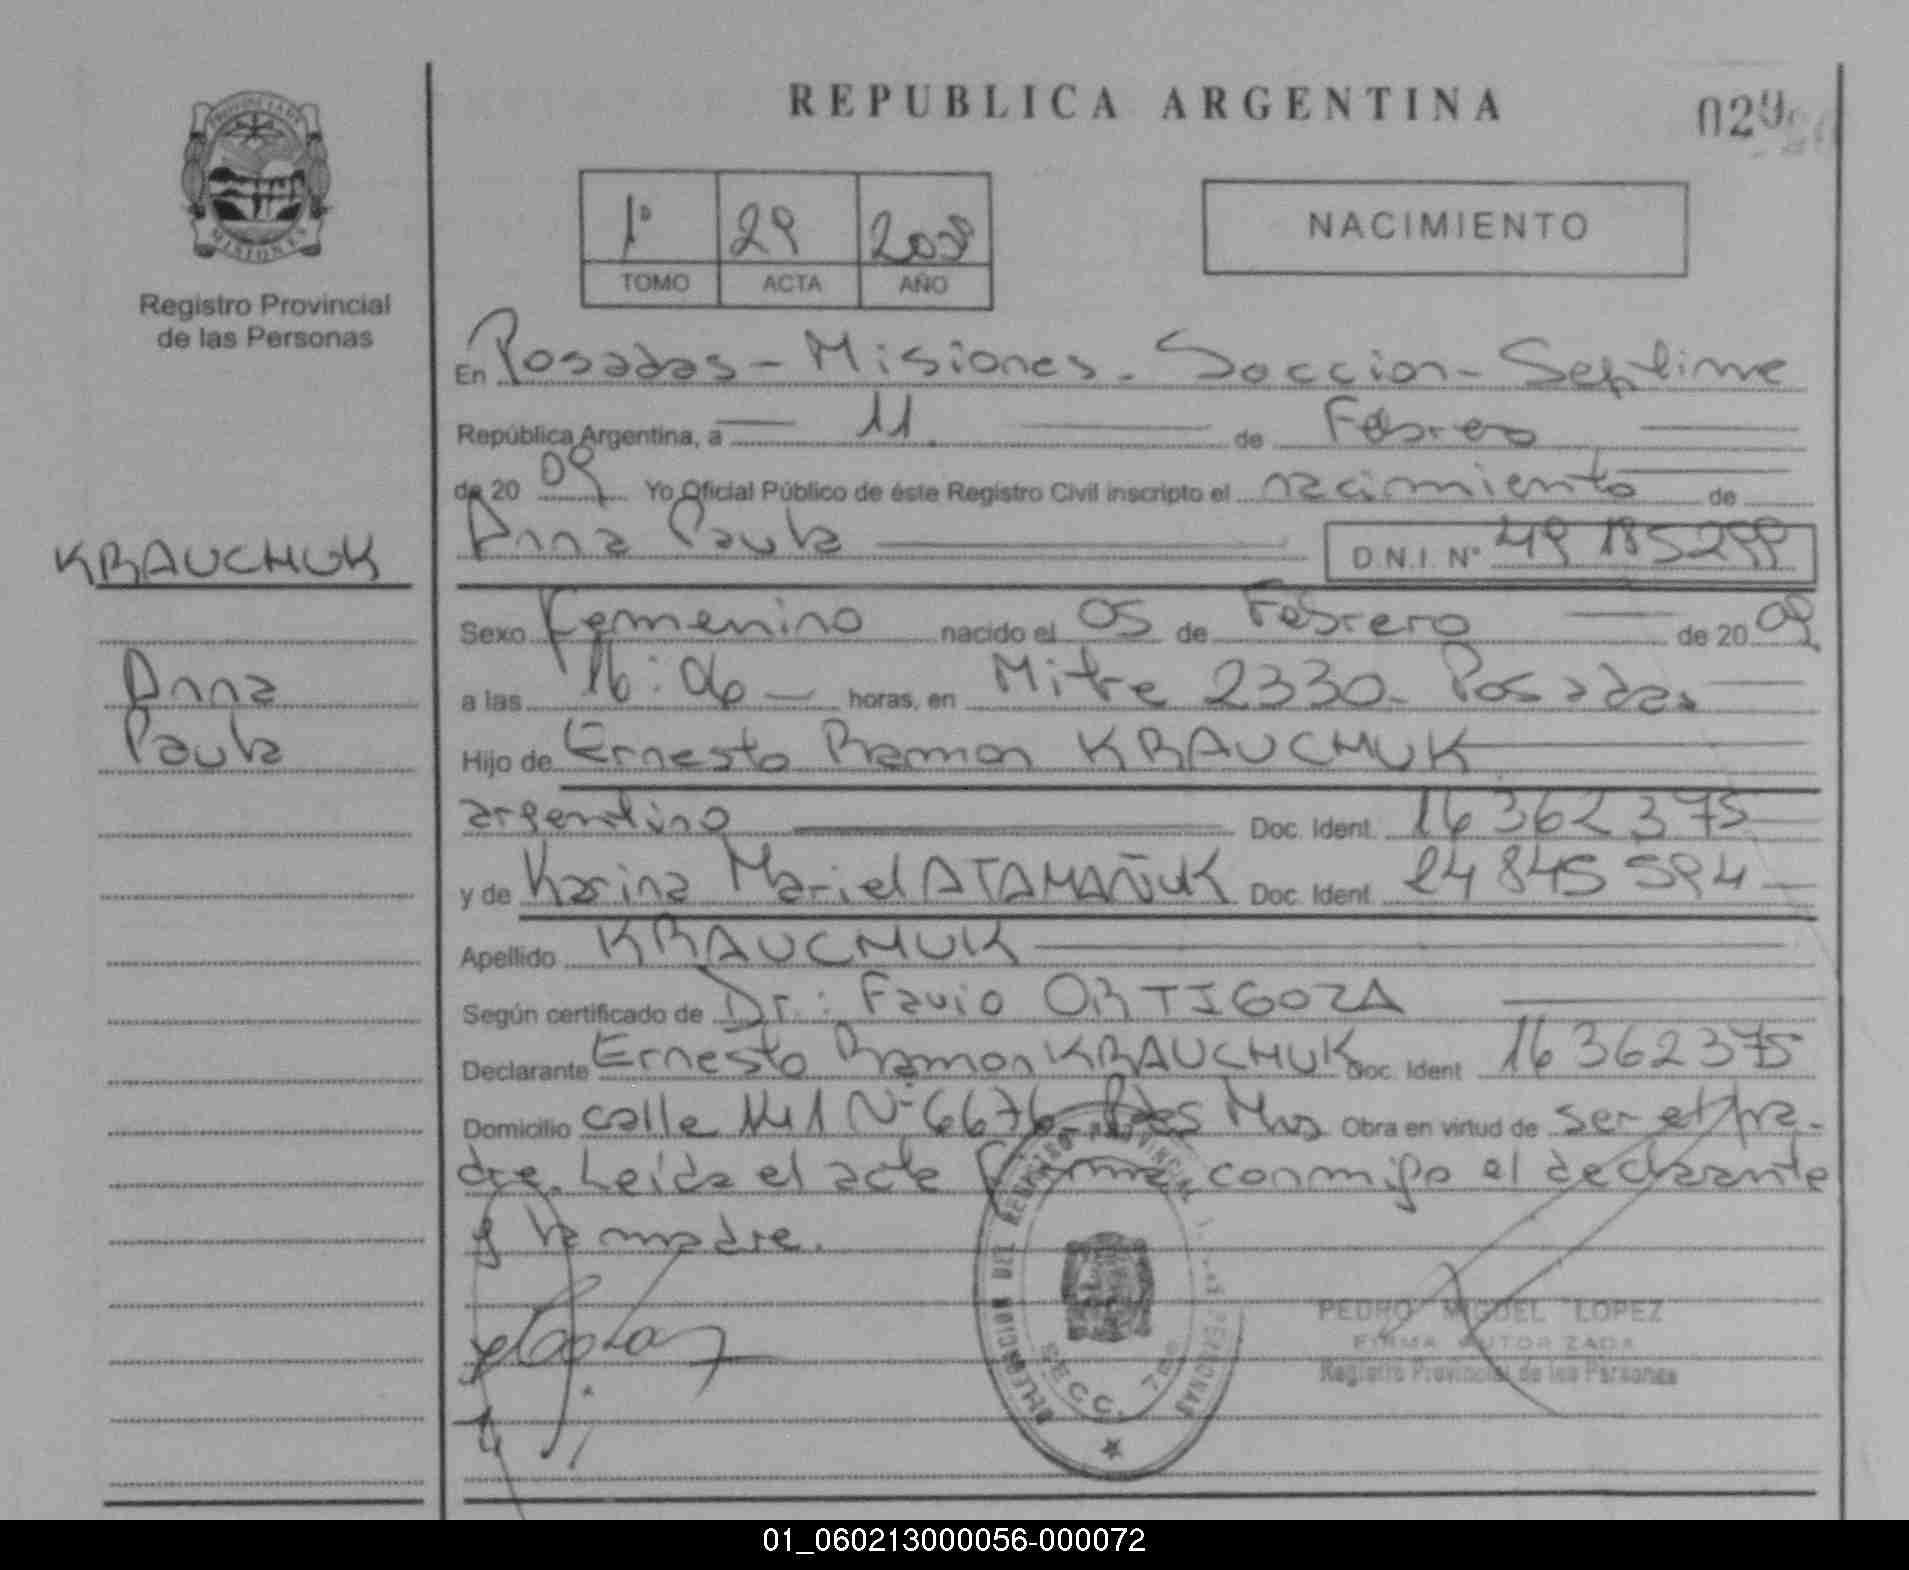 REPUBLICA ARGENTINA
029
PROVINCIA DE MISIONES
Registro Provincial
de las Personas
1º 29 2009
TOMO ACTA AÑO
NACIMIENTO
En Posadas - Misiones. Seccion - Septima
República Argentina, a 11 de Febrero
de 20 09 Yo Oficial Público de éste Registro Civil inscripto el nacimiento de
Anna Paula D.N.I. Nº 49 185299
KRAUCHUK
Anna
Paula
Sexo Femenino nacido el 05 de Febrero de 20 09
a las 16:06 horas, en Mitre 2330 - Posadas
Hijo de Ernesto Ramon KRAUCHUK
argentino Doc. Ident. 16 362 375
y de Karina Mariel ATAMAÑUK Doc. Ident. 24 845 594
Apellido KRAUCHUK
Según certificado de Dr.: Favio ORTIGOZA
Declarante Ernesto Ramon KRAUCHUK Doc. Ident 16 362 375
Domicilio calle 141 Nº 6676 - Pdas Mnes Obra en virtud de ser el pa-
dre. Leída el acta firma conmigo el declarante
y la madre.
DELEGACION DEL REGISTRO PROVINCIAL DE LAS PERSONAS
SECC. 7ma
PEDRO MIGUEL LOPEZ
FIRMA AUTORIZADA
Registro Provincial de las Personas
01_060213000056-000072